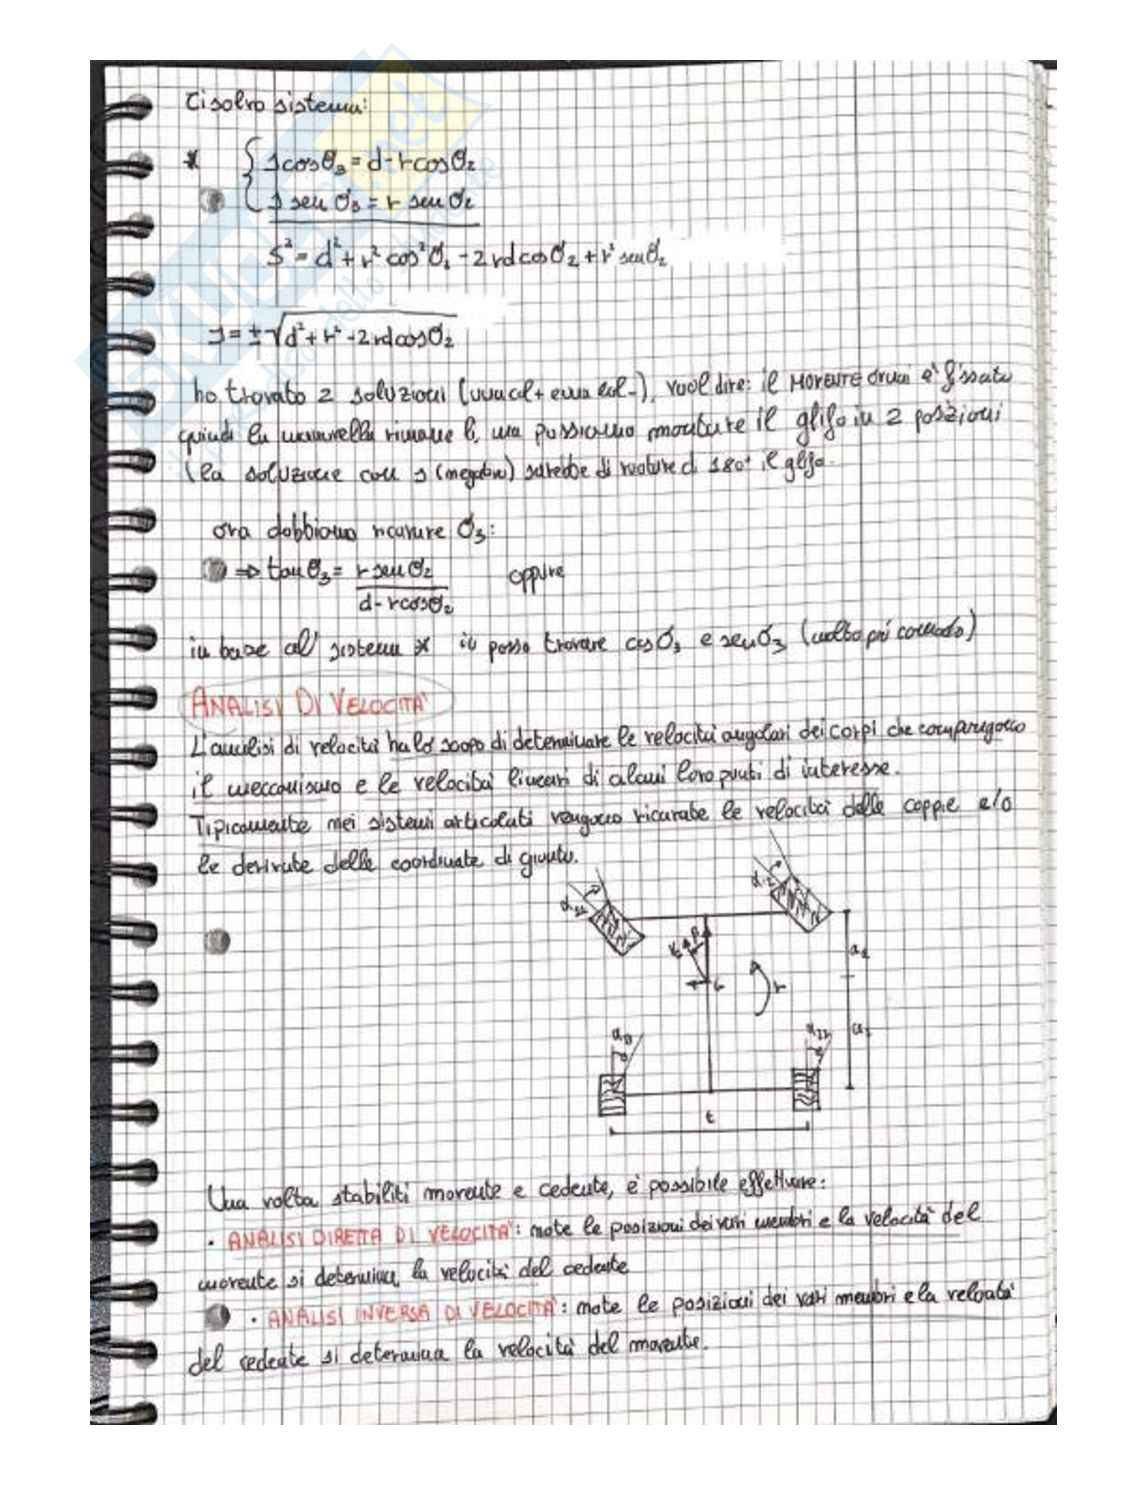 risolvo sistema:
* { s cosθ₃ = d - r cosθ₂
s senθ₃ = r senθ₂
s² = d² + r² cos²θ₂ - 2rd cosθ₂ + r² sen²θ₂
s = ± √d² + r² - 2rd cosθ₂
ho trovato 2 soluzioni (una col + e una col -), vuol dire: il movente ormai e' fissato
quindi la manovella rimane li, ma possiamo montare il glifo in 2 posizioni
(la soluzione con s (negativa) sarebbe di ruotare di 180° il glifo.
ora dobbiamo ricavare θ₃:
⇒ tanθ₃ = r senθ₂ / d - r cosθ₂ oppure
in base al sistema * io posso trovare cosθ₃ e senθ₃ (molto più comodo)
ANALISI DI VELOCITA'
L'analisi di velocità ha lo scopo di determinare le velocità angolari dei corpi che compongono
il meccanismo e le velocità lineari di alcuni loro punti di interesse.
Tipicamente nei sistemi articolati vengono ricavate le velocità delle coppie e/o
le derivate delle coordinate di giunto.
r
t
Una volta stabiliti movente e cedente, è possibile effettuare:
• ANALISI DIRETTA DI VELOCITA': note le posizioni dei vari membri e la velocità del
movente si determina la velocità del cedente
• ANALISI INVERSA DI VELOCITA': note le posizioni dei vari membri e la velocità
del cedente si determina la velocità del movente.